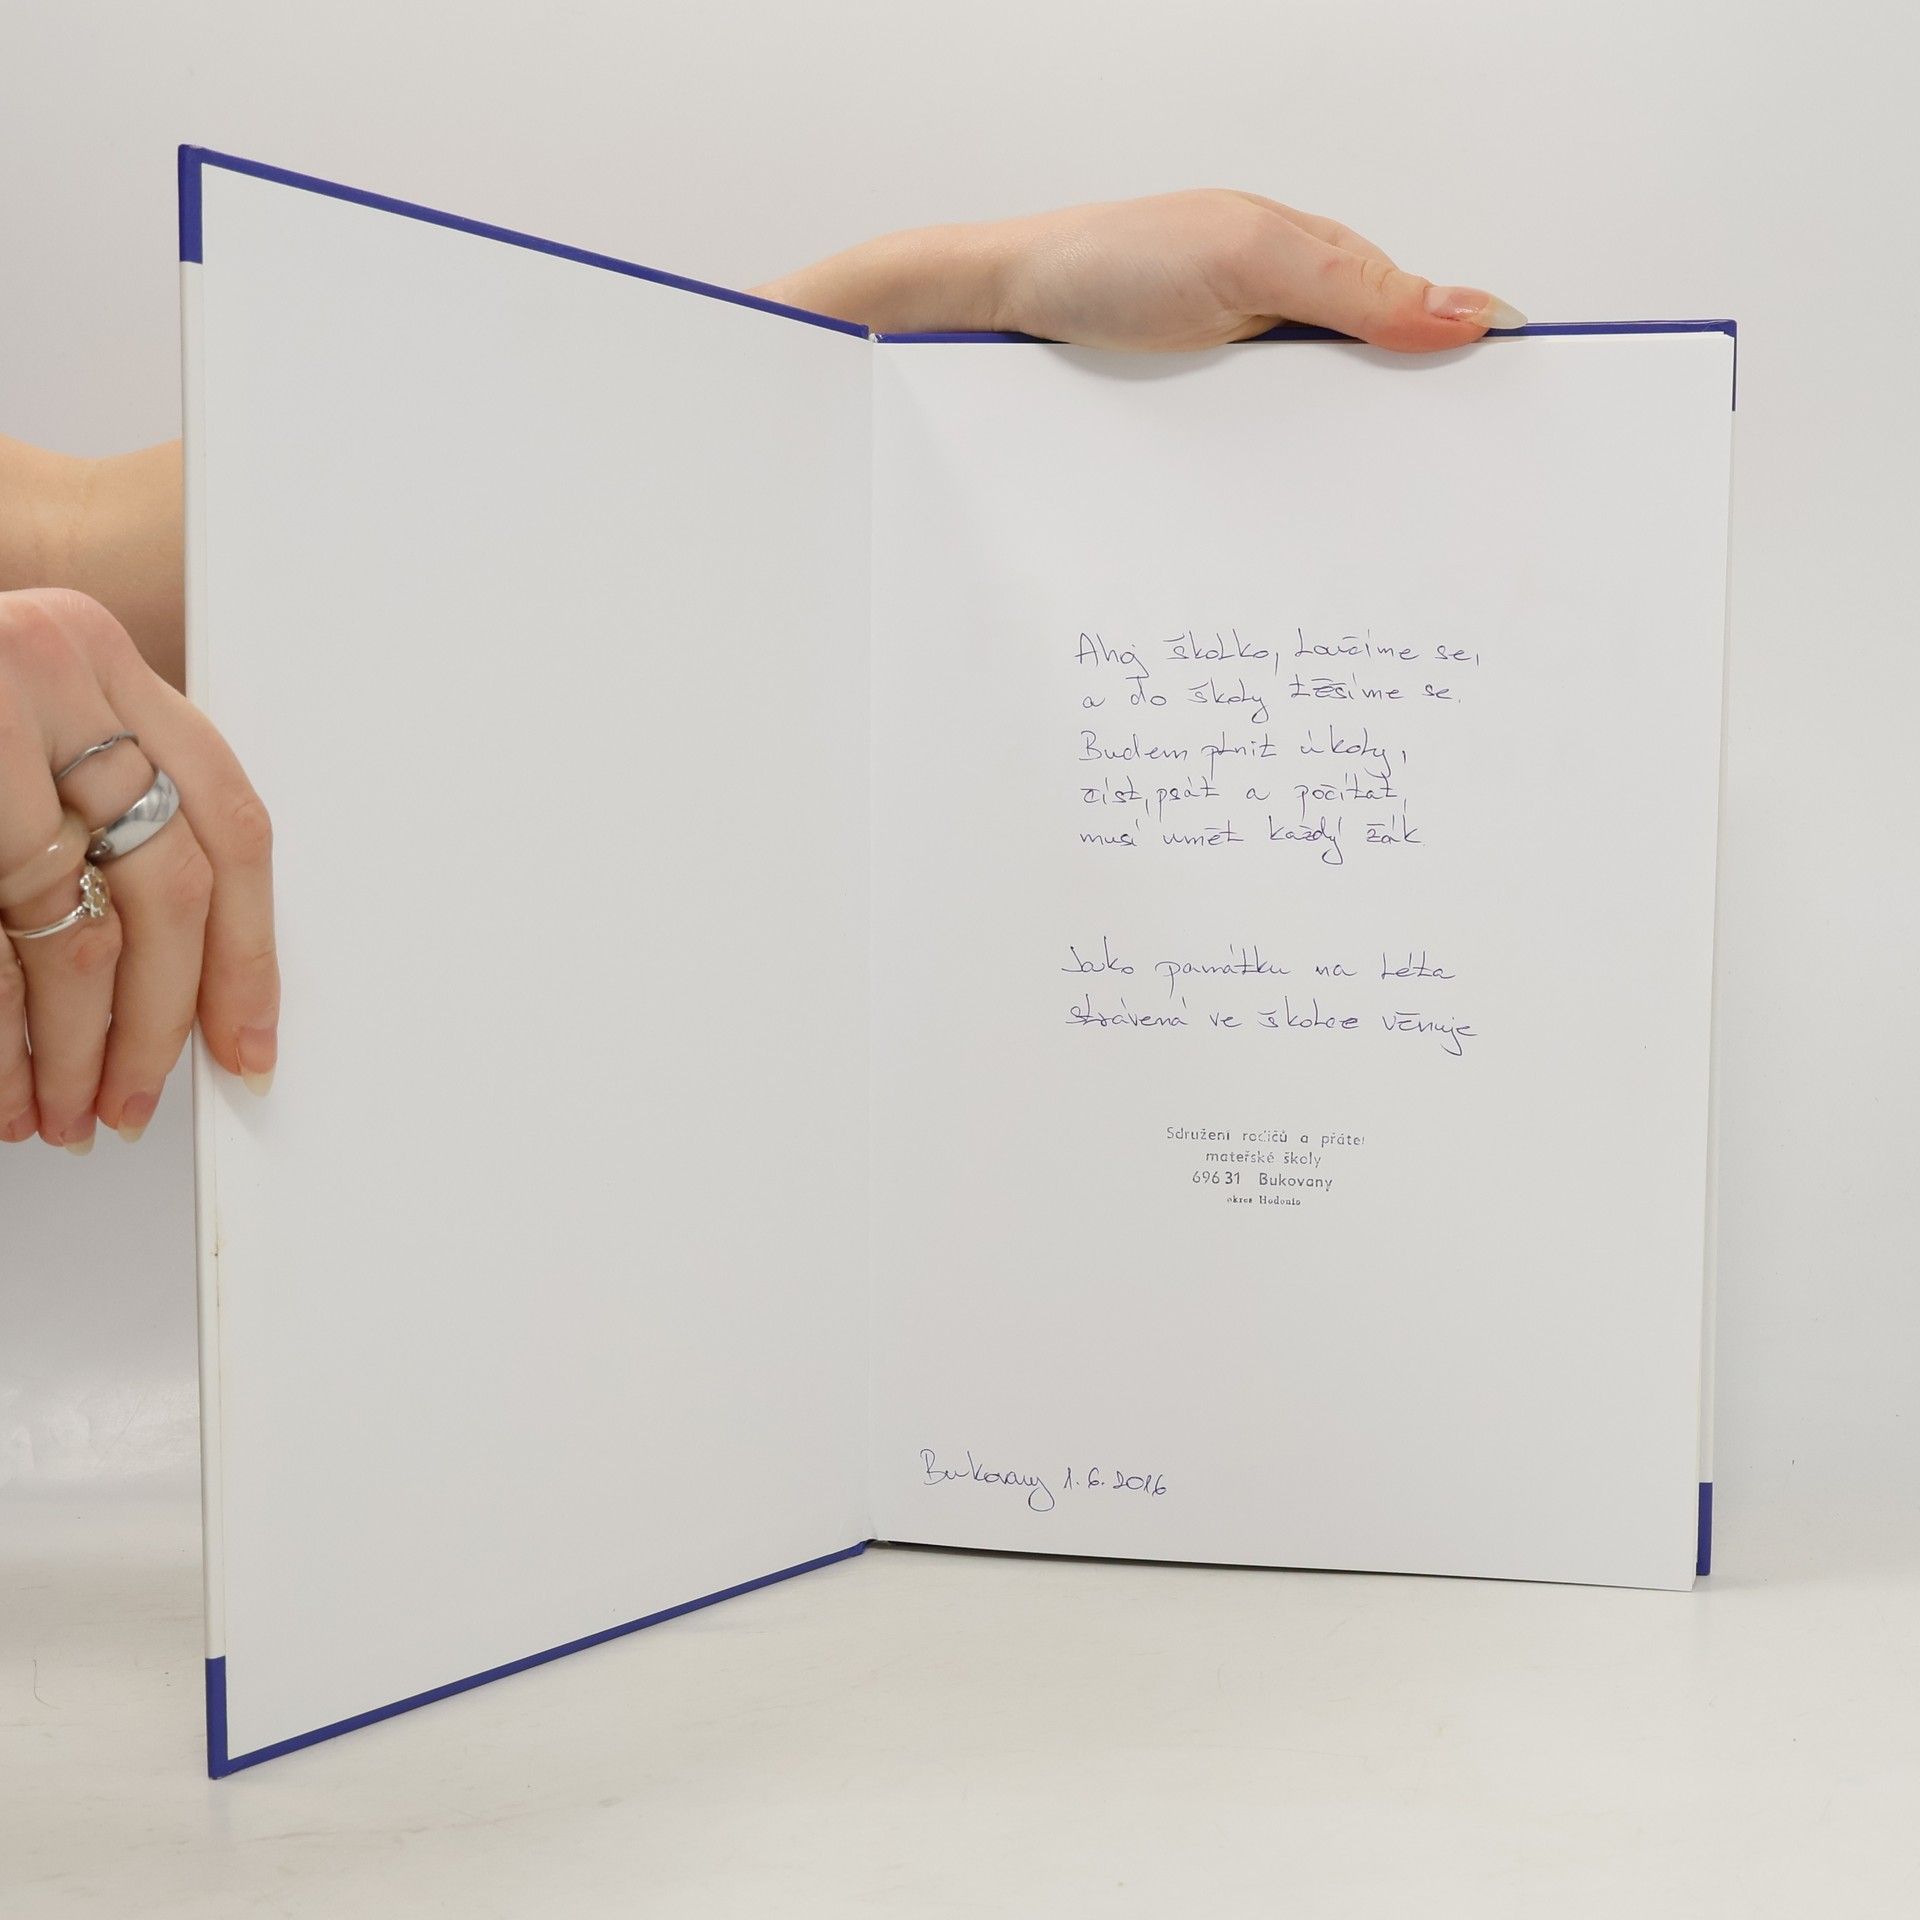 Ahoj školko, loučíme se,
a do školy těšíme se.
Budem plnit úkoly,
číst, psát a počítat,
musí umět každý žák.
Jako památku na léta
strávená ve školce věnuje
Sdružení rodičů a přátel
mateřské školy
696 31 Bukovany
okres Hodonín
Bukovany 1.6.2016